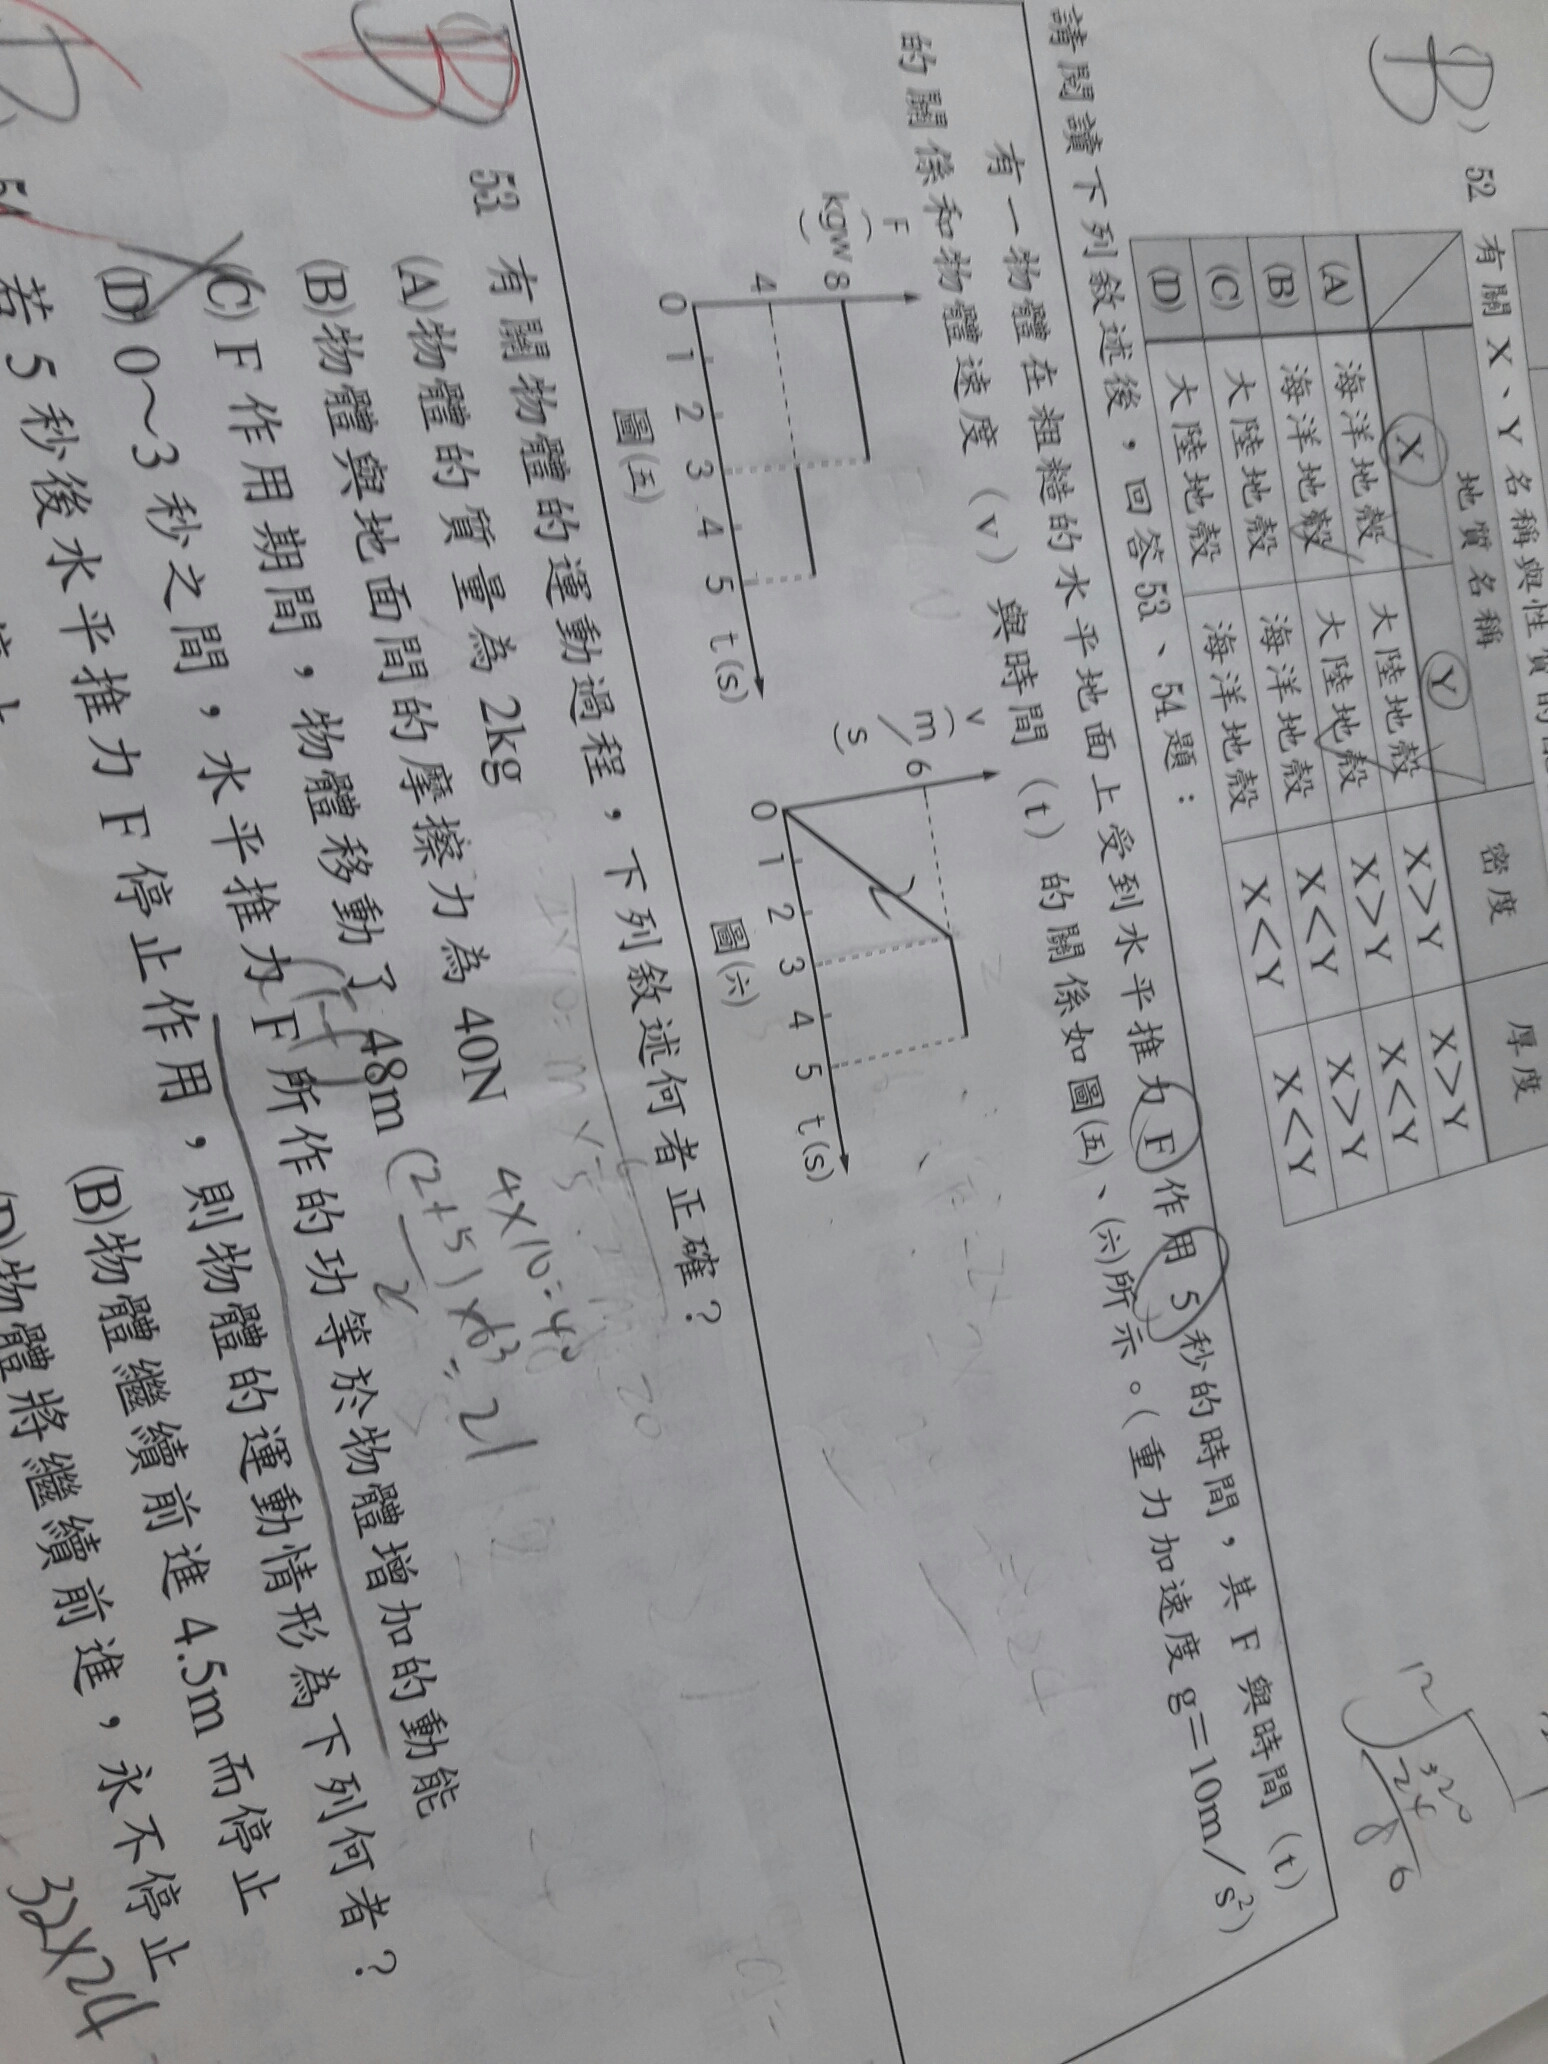 (B) 52 有關 X、Y 名稱與性質的
地質名稱 密度 厚度
X Y
(A) 海洋地殼 大陸地殼 X＞Y X＞Y
(B) 海洋地殼 大陸地殼 X＞Y X＜Y
(C) 大陸地殼 海洋地殼 X＜Y X＞Y
(D) 大陸地殼 海洋地殼 X＜Y X＜Y
12 320
24
8 6
請閱讀下列敘述後，回答 53、54 題：
有一物體在粗糙的水平地面上受到水平推力 F 作用 5 秒的時間，其 F 與時間（t）
的關係和物體速度（v）與時間（t）的關係如圖(五)、(六)所示。（重力加速度 g＝10m／s²）
F
(kgw)
8
4
0 1 2 3 4 5 t(s)
圖(五)
v
(m／s)
6
2
0 1 2 3 4 5 t(s)
圖(六)
B 53 有關物體的運動過程，下列敘述何者正確？
(A)物體的質量為 2kg
(B)物體與地面間的摩擦力為 40N 4×10=40
(C) F 作用期間，物體移動了 48m (2+5)×6 3 = 21
2
(D) 0～3 秒之間，水平推力 F 所作的功等於物體增加的動能
54 若 5 秒後水平推力 F 停止作用，則物體的運動情形為下列何者？
(B)物體繼續前進 4.5m 而停止
(D)物體將繼續前進，永不停止
32×24